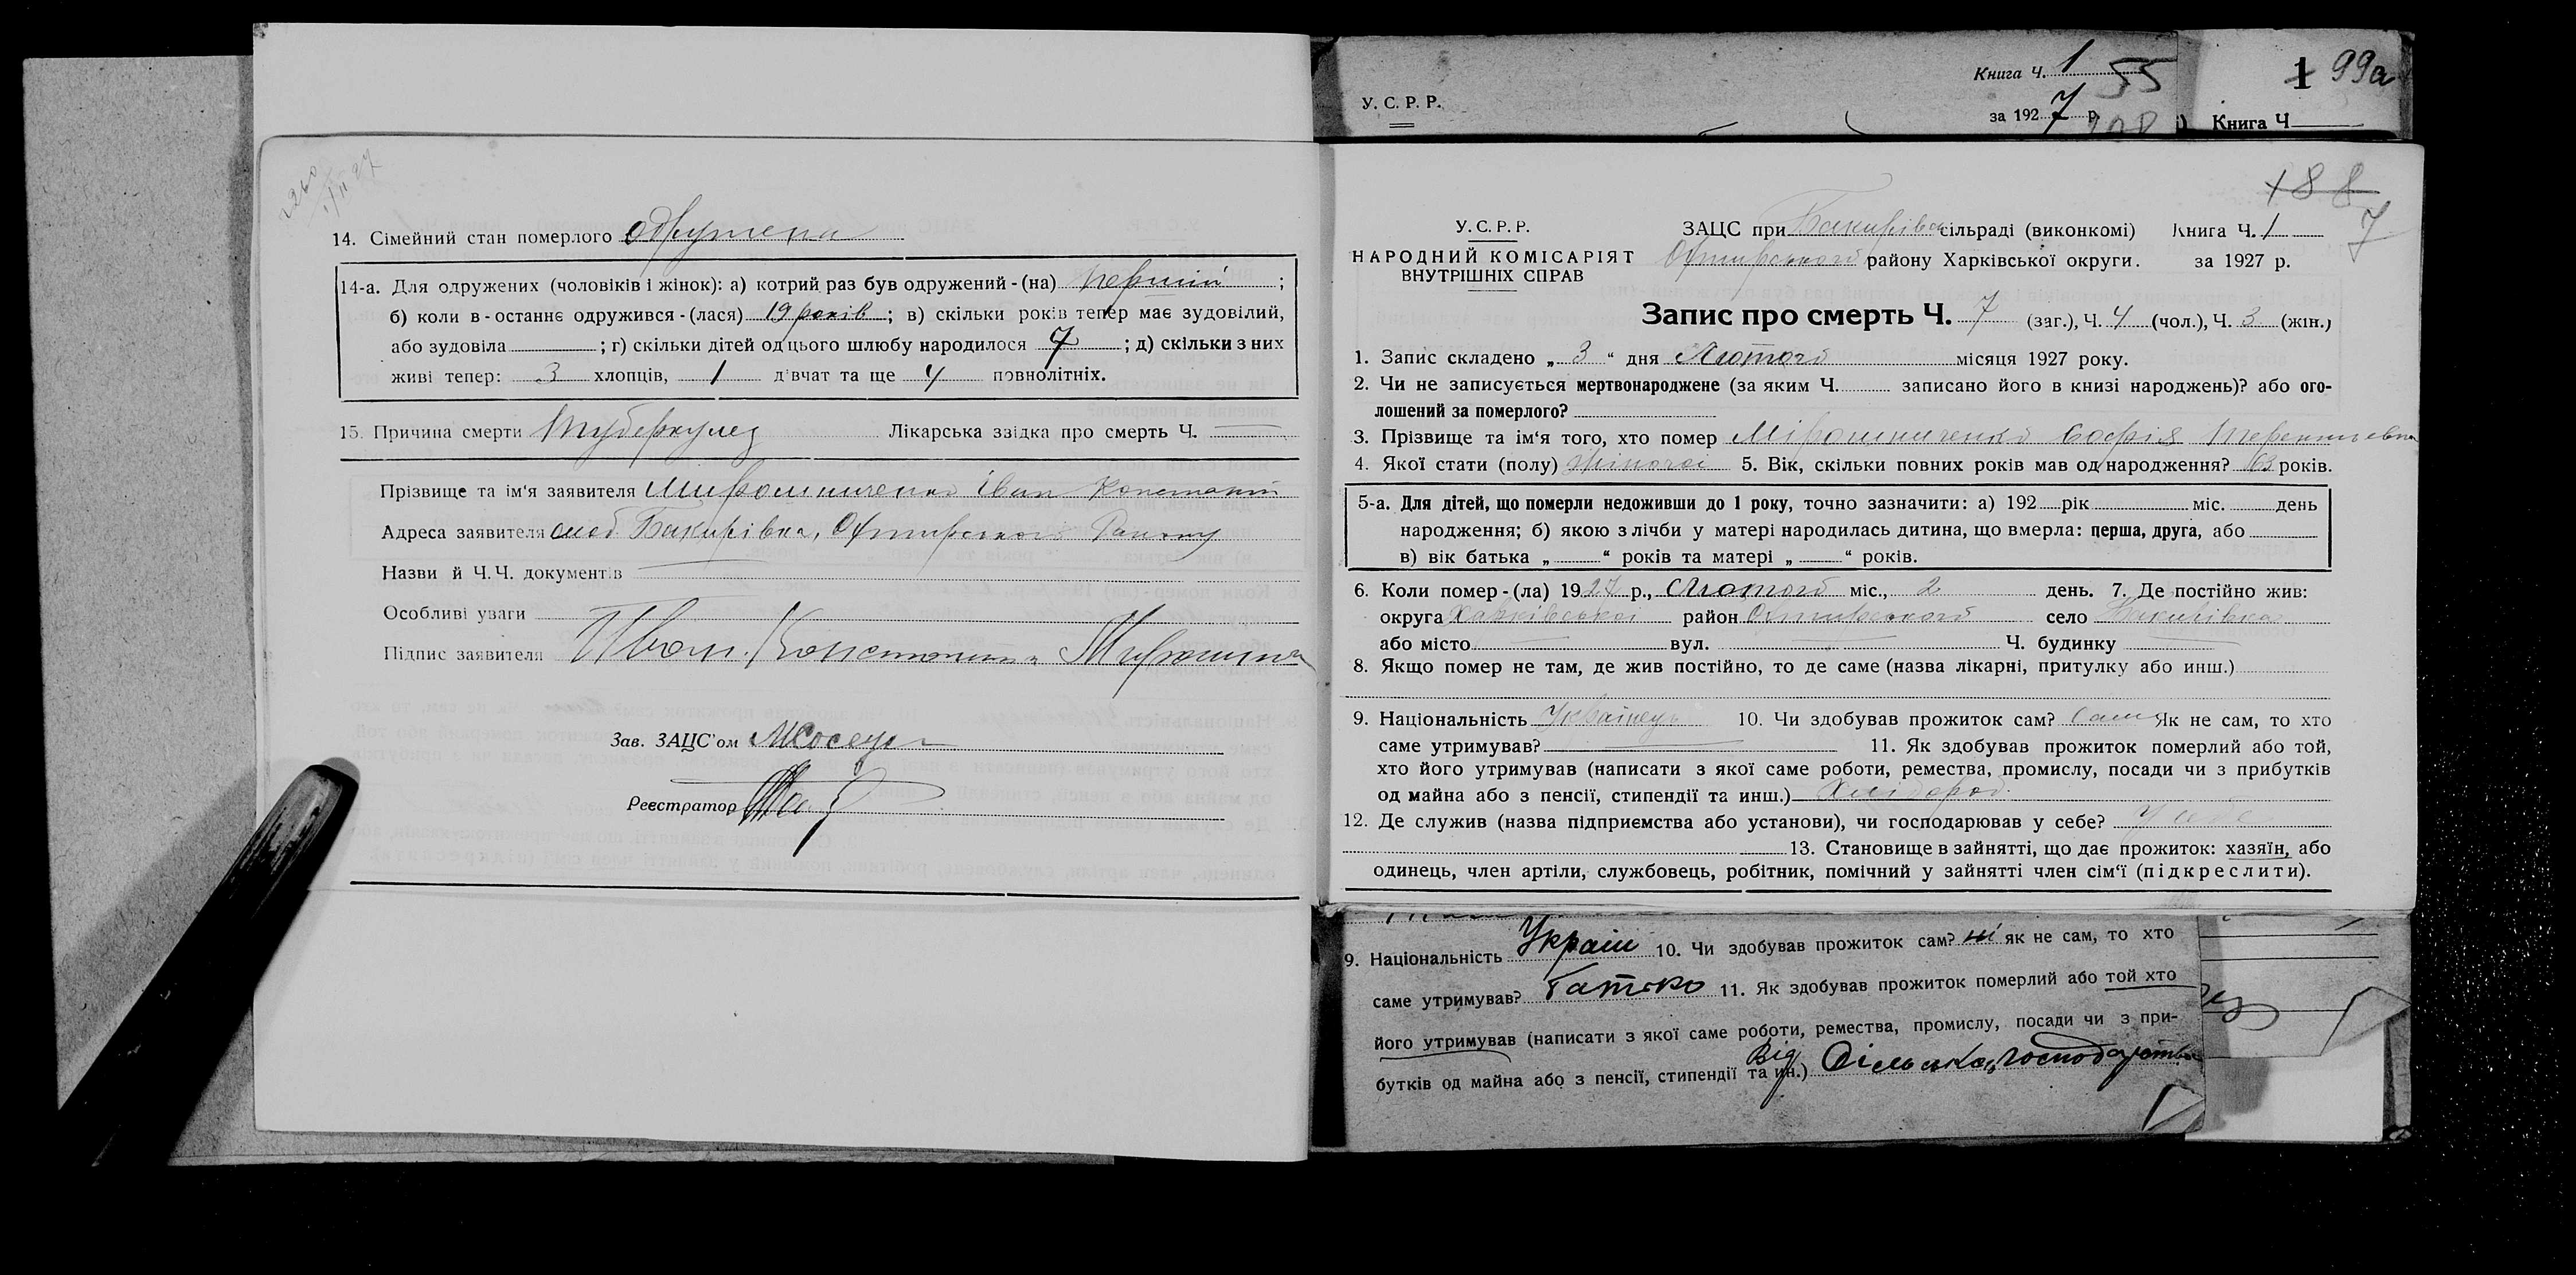 14. Сімейний стан померлого одружена
14-а. Для одружених (чоловіків і жінок): а) котрий раз був одружений-(на) перший ;
б) коли в-останнє одружився-(лася) 19 років ; в) скільки років тепер має зудовілий,
або зудовіла ; г) скільки дітей од цього шлюбу народилося 7 ; д) скільки з них
живі тепер: 3 хлопців, 1 дівчат та ще 4 повнолітніх.
15. Причина смерти туберкулез Лікарська звідка про смерть Ч.
Прізвище та ім'я заявителя Мирошниченко Іван Констант
Адреса заявителя слоб. Бакирівка, Охтирського Району
Назви й Ч.Ч. документів
Особливі уваги
Підпис заявителя Иван Константин Мирошнич
Зав. ЗАЦС'ом
Реєстратор
Книга Ч. 1 55
У. С. Р. Р.
за 1927 р.
1 99а
Книга Ч
188
7
У. С. Р. Р.
НАРОДНИЙ КОМІСАРІЯТ
ВНУТРІШНІХ СПРАВ
ЗАЦС при Бакирівс сільраді (виконкомі) Книга Ч. 1
Охтирського району Харківської округи. за 1927 р.
Запис про смерть Ч. 7 (заг.), Ч. 4 (чол.), Ч. 3 (жін.)
1. Запис складено „ 3 “ дня Лютого місяця 1927 року.
2. Чи не записується мертвонароджене (за яким Ч. записано його в книзі народжень)? або ого-
лошений за померлого?
3. Прізвище та ім'я того, хто помер Мірошниченко Софія Терентиевна
4. Якої стати (полу) жіночої 5. Вік, скільки повних років мав од народження? 63 років.
5-а. Для дітей, що померли недоживши до 1 року, точно зазначити: а) 192 рік міс. день
народження; б) якою з лічби у матері народилась дитина, що вмерла: перша, друга, або
в) вік батька „ “ років та матері „ “ років.
6. Коли помер-(ла) 1927 р., Лютого міс., 2 день. 7. Де постійно жив:
округа Харківської район Охтирського село Бакирівка
або місто вул. Ч. будинку
8. Якщо помер не там, де жив постійно, то де саме (назва лікарні, притулку або инш.)
9. Національність Українець 10. Чи здобував прожиток сам? Сам Як не сам, то хто
саме утримував? 11. Як здобував прожиток померлий або той,
хто його утримував (написати з якої саме роботи, ремества, промислу, посади чи з прибутків
од майна або з пенсії, стипендії та инш.) Хлібороб
12. Де служив (назва підприємства або установи), чи господарював у себе? У себе
13. Становище в зайнятті, що дає прожиток: хазяїн, або
одинець, член артіли, службовець, робітник, помічний у зайнятті член сім'ї (підкреслити).
9. Національність Україн 10. Чи здобував прожиток сам? ні як не сам, то хто
саме утримував? Батько 11. Як здобував прожиток померлий або той хто
його утримував (написати з якої саме роботи, ремества, промислу, посади чи з при-
бутків од майна або з пенсії, стипендії та ин.) Від Сільська господарства